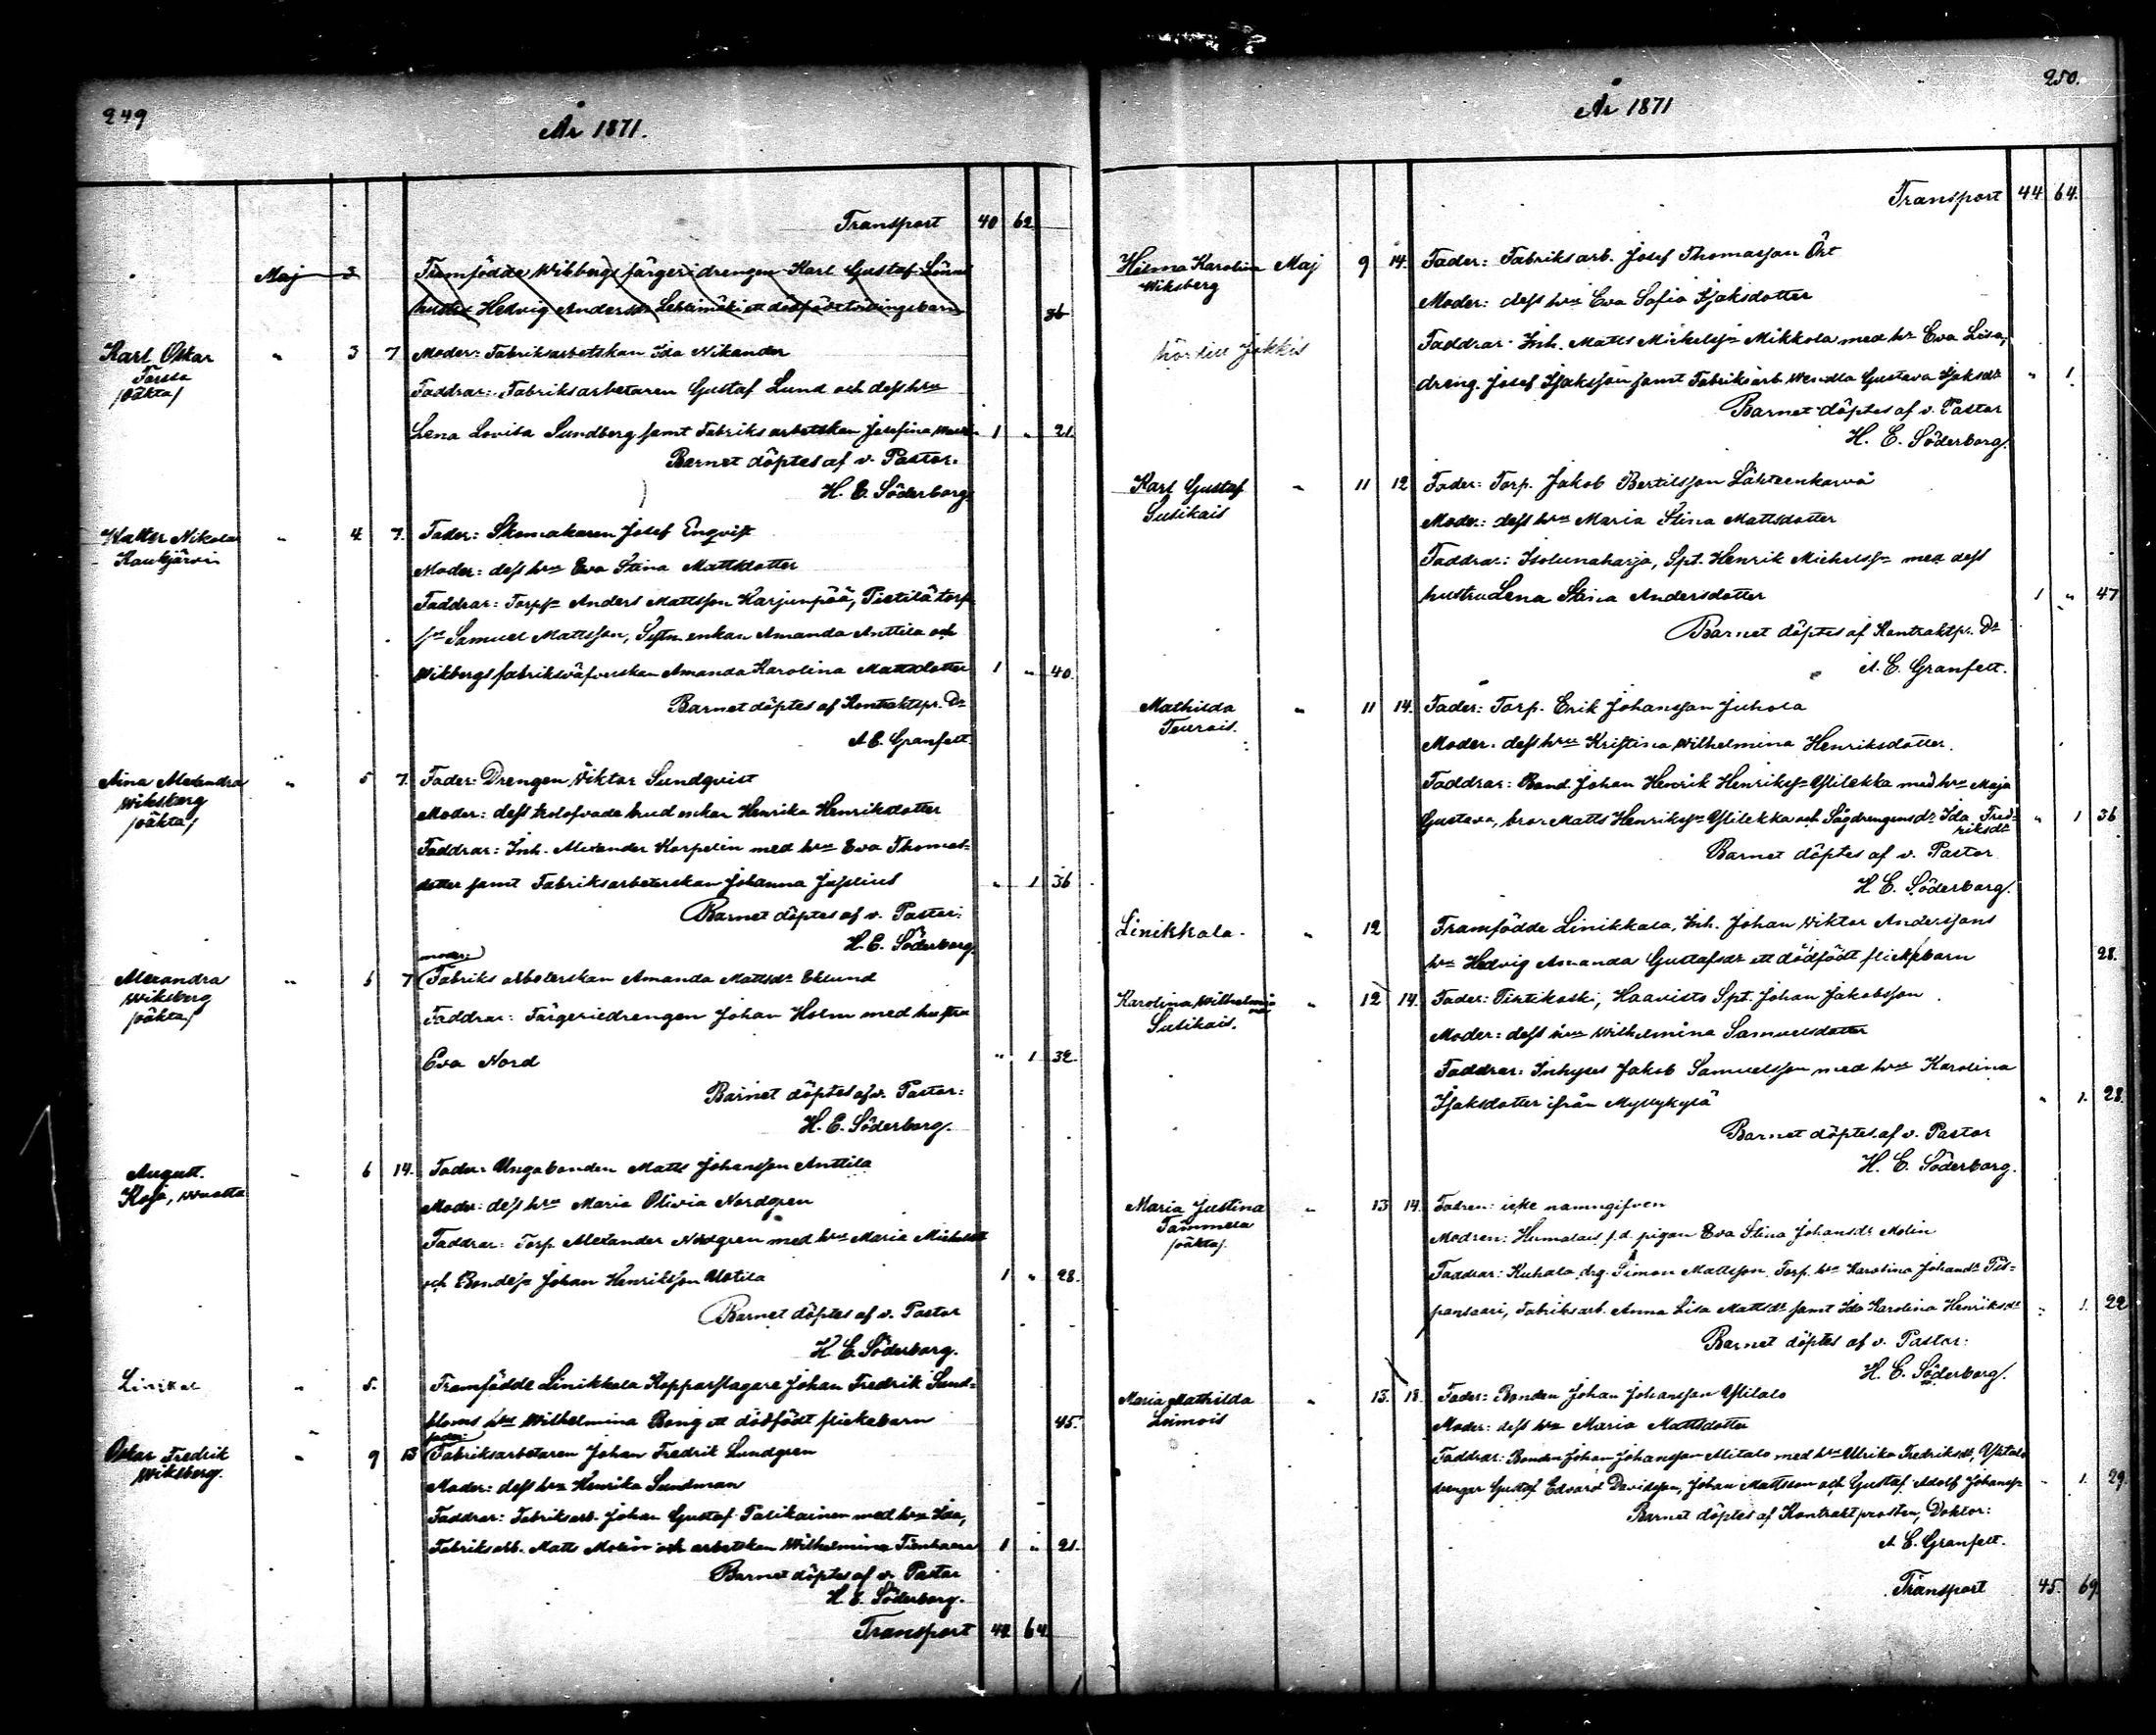 249
År 1871.
Transport 40 62
Maj 3 Framfödde Wikbergs färgeridrengen Karl Gustaf
hustru Hedvig Andersdr Lehtimäki ett dödfödt tvillingebarn 36
Karl Oskar " 3 7 Moder: Fabriksarbetskan Ida Nikander
Forssa Faddrar: Fabriksarbetaren Gustaf Lund och dess hru
/oäkta/
Lena Lovisa Sundberg samt Fabriksarbetskan Josefina 1 " 21.
Barnet döptes af v. Pastor.
H. E. Söderborg.
Walter Nikolai " 4 7. Fader: Skomakaren Josef Enqvist
Kaukjärvi Moder: dess hru Eva Stina Mattsdotter
Faddrar: Torpsn Anders Mattsson Karjunpää, Pietilä torp
sn Samuel Mattsson, Sytn. enkan Amanda Anttila och
Wikbergs fabriksväfverskan Amanda Karolina Mattsdotter 1 " 40.
Barnet döptes af Kontraktspr. Dr
A. E. Granfelt.
Aina Alexandra " 5 7. Fader: Drengen Viktor Sundqvist
Wiksberg Moder: dess trolofvade brud enkan Henrika Henriksdotter
/oäkta/
Faddrar: Inh. Alexander Korpelin med hru Eva Thomas-
dotter samt Fabriksarbeterskan Johanna Juselius " 1 36
Barnet döptes af v. Pastor:
H. E. Söderborg.
moder:
Alexandra " 5 7 Fabriks arbeterskan Amanda Mattsdr Eklund
Wiksberg Faddrar: Färgeriedrengen Johan Holm med hustru
/oäkta/
Eva Nord " 1 32.
Barnet döptes af v. Pastor:
H. E. Söderborg.
August. 6 14. Fader: Ungabonden Matts Johansson Anttila
Kojo, Moder: dess hru Maria Olivia Nordgren
Faddrar: Torp. Alexander Nordgren med hru Maria Michelsdr
och Bondesn Johan Henriksson Uotila 1 " 28.
Barnet döptes af v. Pastor
H. E. Söderborg.
" 5. Framfödde Linikkala Kopparslagare Johan Fredrik Sund-
bloms hru Wilhelmina Bong ett dödfödt flickebarn 45.
fader:
Oskar Fredrik " 9 13 Fabriksarbetaren Johan Fredrik Lundgren
Wiksberg. Moder: dess hru Henrika Sundman
Faddrar: Fabriksarb. Johan Gustaf Palikainen med hru Ida,
Fabriksarb. Matts Molin och arbetskan Wilhelmina Tienhaara 1 " 21.
Barnet döptes af v. Pastor
H. E. Söderborg.
Transport 44 64
250.
År 1871
Transport 44 64.
Hilma Karolina Maj 9 14. Fader: Fabriksarb. Josef Thomasson Öst
Wiksberg Moder: dess hru Eva Sofia Isaksdotter
hör till Jokkis Faddrar: Inh. Matts Michelsson Mikkola med hr Eva Lisa,
dreng. Josef Isaksson samt Fabriksarb. Wendla Gustava Isaksdr " 1.
Barnet döptes af v. Pastor
H. E. Söderborg.
Karl Gustaf " 11 12 Fader: Torp. Jakob Bertilsson Lähteenkorva
Sukikais Moder: dess hru Maria Stina Mattsdotter
Faddrar: Isolunaharja, Spt. Henrik Michelssn med dess
hustru Lena Stina Andersdotter 1 " 47
Barnet döptes af Kontraktpr. Dr
A. E. Granfelt.
Mathilda " 11 14. Fader: Torp. Erik Johansson Juhola
Teurois. Moder: dess hru Kristina Wilhelmina Henriksdotter.
Faddrar: Bond. Johan Henrik Henrikssn Ylilekka med hru Maja
Gustava, bror Matts Henrikssn Ylilekka och Sågdrengens dr Ida Fred-
riksdr " 1 36
Barnet döptes af v. Pastor
H. E. Söderborg.
Linikkala. " 12 Framfödde Linikkala, Inh. Johan Wiktor Anderssons
hru Hedvig Amanda Gustafsdr ett dödfödt flickebarn 28.
Karolina Wilhelmi- " 12 14. Fader: Pirtikoski, Haavisto Spt. Johan Jakobsson
na
Sukikais. Moder: dess hru Wilhelmina Samuelsdotter
Faddrar: Inhyses Jakob Samuelsson med hru Karolina
Isaksdotter ifrån Myllykylä " 1. 28.
Barnet döptes af v. Pastor
H. E. Söderborg.
Maria Justina " 13 14. Fadren: icke namngifven
Tammela Modren: Humalais f.d. pigan Eva Stina Johansdr Molin
/oäkta/.
Faddrar: Kuhala drg. Simon Mattsson, Torp. hru Karolina Johansdr Pis-
pansaari, Fabriksarb. Anna Lisa Mattsdr samt Ida Karolina Henriksdr " 1. 22
Barnet döptes af v. Pastor:
H. E. Söderborg.
Maria Mathilda " 13. 18. Fader: Bonden Johan Johansson Ylitalo
Liimois Moder: dess hru Maria Mattsdotter
Faddrar: Bonden Johan Johansson Alitalo med hru Ulrika Fredriksdr, Ylitalo
drengar Gustaf Edvard Davidsson, Johan Mattsson och Gustaf Adolf Johanssn " 1. 29.
Barnet döptes af Kontraktprosten, Doktor:
A. E. Granfelt.
Transport 45. 69